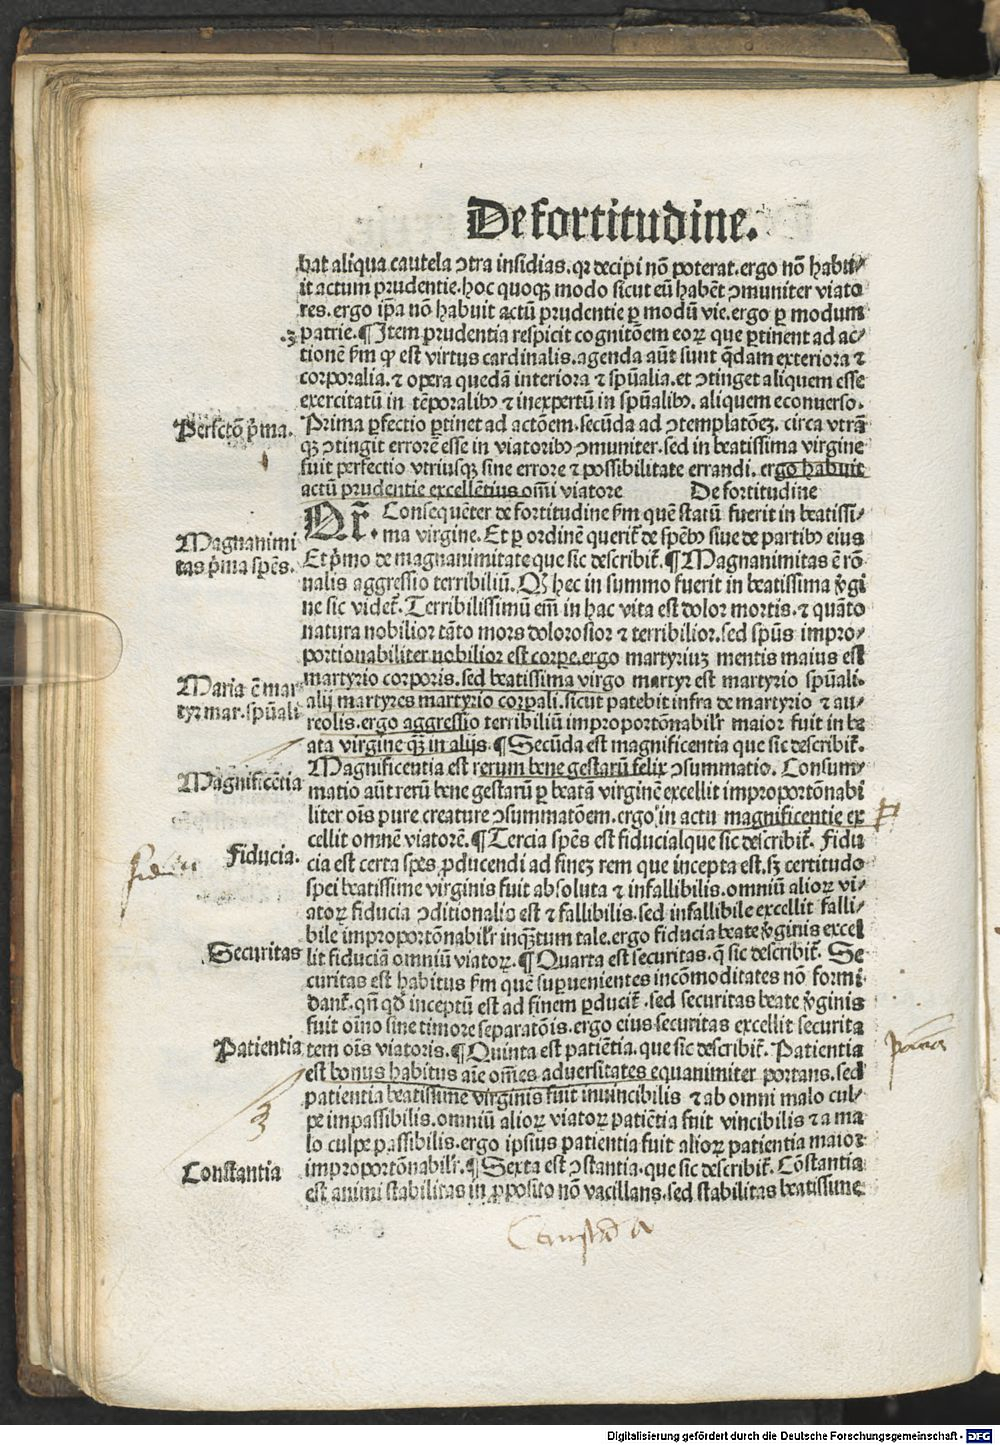 De fortitudine.
bat aliqua cautela ↄtra insidias. qr decipi nõ poterat. ergo nõ habu⸗
it actum prudentie. hoc quoqꝫ modo sicut eũ habẽt ↄmuniter viato
res. ergo ip̃a nõ habuit actũ prudentie ꝑ modũ vie. ergo ꝑ modum
.3. patrie. ¶ Item prudentia respicit cognitõem eoꝝ que ꝑtinent ad ac⸗
tionẽ ẜm ꝙ est virtus cardinalis. agenda aũt sunt q̃dam exteriora ⁊
corporalia. ⁊ opera quedã interiora ⁊ spũalia. et ↄtinget aliquem esse
exercitatũ in tẽporalibꝰ ⁊ inexpertũ in spũalibꝰ. aliquem econuerso.
Perfectõ p̃ma.
Prima ꝑfectio ꝑtinet ad actõem. secũda ad ↄtemplatõeꝫ. circa vtrã
qꝫ ↄtingit errorẽ esse in viatoribꝰ ↄmuniter. sed in beatissima virgine
fuit perfectio vtriusqꝫ sine errore ⁊ possibilitate errandi. ergo habuit
actũ prudentie excellẽtius om̃i viatore De fortitudine
Qr̃. Consequẽter de fortitudine ẜm quẽ statũ fuerit in beatissi⸗
ma virgine. Et ꝑ ordinẽ querit᷑ de spẽbꝰ siue de partibꝰ eius
Magnanimi
tas p̃ma spẽs.
Et p̃mo de magnanimitate que sic describit᷑. ¶ Magnanimitas ẽ rõ
nalis aggressio terribiliũ. Qꝫ hec in summo fuerit in beatissima ỹgi
ne sic videt᷑. Terribilissimũ em̃ in hac vita est dolor mortis. ⁊ quãto
natura nobilior tãto mors dolorosior ⁊ terribilior. sed spũs impro⸗
portionabiliter nobilior est corpe. ergo martyriuꝫ mentis maius est
Maria ẽ mar
tyr mar. spũali
martyrio corporis. sed beatissima virgo martyr est martyrio spũali.
alij martyres martyrio corpali. sicut patebit infra de martyrio ⁊ au⸗
reolis. ergo aggressio terribiliũ improportõnabilr̃ maior fuit in be
ata virgine q̃ꝫ in alijs. ¶ Secũda est magnificentia que sic describit᷑.
Magnificẽtia
Magnificentia est rerum bene gestarũ felix ↄsummatio. Consum⸗
matio aũt rerũ bene gestarũ ꝑ beatã virginẽ excellit improportõnabi
liter oĩs pure creature ↄsummatõem. ergo in actu magnificentie ex
cellit omnẽ viatorẽ. ¶ Tercia spẽs est fiducialque sic describit᷑. Fidu
Fiducia.
cia est certa spes ꝓducendi ad fineꝫ rem que incepta est. sꝫ certitudo
spei beatissime virginis fuit absoluta ⁊ infallibilis. omniũ alioꝝ vi⸗
atoꝝ fiducia ↄditionalis est ⁊ fallibilis. sed infallibile excellit falli⸗
bile improportõnabilr̃ inqꝫtum tale. ergo fiducia beate ỹginis excel
Securitas
lit fiduciã omniũ viatoꝝ. ¶ Quarta est securitas. q̃ sic describit᷑. Se
curitas est habitus ẜm quẽ supuenientes incõmoditates nõ formi⸗
dant᷑. qñ qđ inceptũ est ad finem ꝑducit᷑. sed securitas beate ỹginis
fuit oĩno sine timore separatõis. ergo eius securitas excellit securita
Patientia
tem oĩs viatoris. ¶ Quinta est patiẽtia. que sic describit᷑. Patientia
est bonus habitus aĩe om̃es aduersitates equanimiter portans. sed
patientia beatissime virginis fuit inuincibilis ⁊ ab omni malo cul⸗
pe impassibilis. omniũ alioꝝ viatoꝝ patiẽtia fuit vincibilis ⁊ a ma
lo culpe passibilis. ergo ipsius patientia fuit alioꝝ patientia maior
Constantia
improportõnabilr̃. ¶ Sexta est ↄstantia. que sic describit᷑. Cõstantia
est animi stabilitas in ꝓposito nõ vacillans. sed stabilitas beatissime
Digitalisierung gefördert durch die Deutsche Forschungsgemeinschaft - DFG